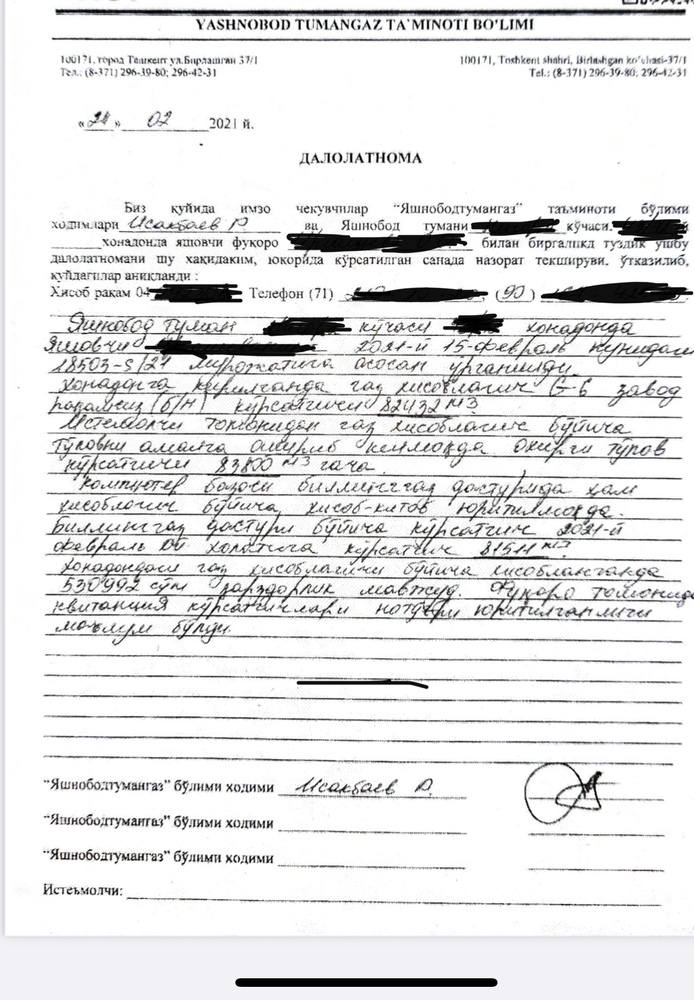 YASHNOBOD TUMANGAZ TA`MINOTI BO'LIMI
100171, город Ташкент ул.Бирлашган 37/1
Тел.: (8-371) 296-39-80; 296-42-31
100171, Toshkent shahri, Birlashgan ko'chasi-37/1
Tel.: (8-371) 296-39-80; 296-42-31
« » 02 2021 й.
ДАЛОЛАТНОМА
Биз қуйида имзо чекувчилар “Яшнободтумангаз” таъминоти бўлими
ходимлари Исакбаев Р ва, Яшнобод тумани кўчаси.
хонадонда яшовчи фуқоро билан биргаликд туздик ушбу
далолатномани шу хақидаким, юкорида кўрсатилган санада назорат текшируви. ўтказилиб,
қуйдагилар аниқланди :
Хисоб рақам 04 Телефон (71) (90)
Яшнобод туман кўчаси хонадонда
Яшовчи 2021-й 15-февраль кунидаги
18503-S/21 мурожатига асосан ўрганилди.
хонадонга кирилганда газ хисоблагич G-6 завод
рақамсиз (б/н) кўрсатгичи 82432 м3
Истемолчи томонидан газ хисоблагич бўйича
тўловни амалга ошириб келмоқда охирги тўлов
кўрсатгичи 83800 м3 гача.
Компютер базаси биллинггаз дастурида хам
хисоблагич бўйича хисоб-китоб юритилмоқда.
Биллинггаз дастури бўйича кўрсатгич 2021-й
февраль ой холатига кўрсатгич 81511 м3
хонадондаги газ хисоблагичи бўйича хисобланганда
530992 сўм қарздорлик мавжуд. Фуқаро томонида
квитанция кўрсатгичлари нотўғри юритилганлиги
маълум бўлди.
“Яшнободтумангаз” бўлими ходими Исакбаев Р.
“Яшнободтумангаз” бўлими ходими
“Яшнободтумангаз” бўлими ходими
Истеъмолчи: